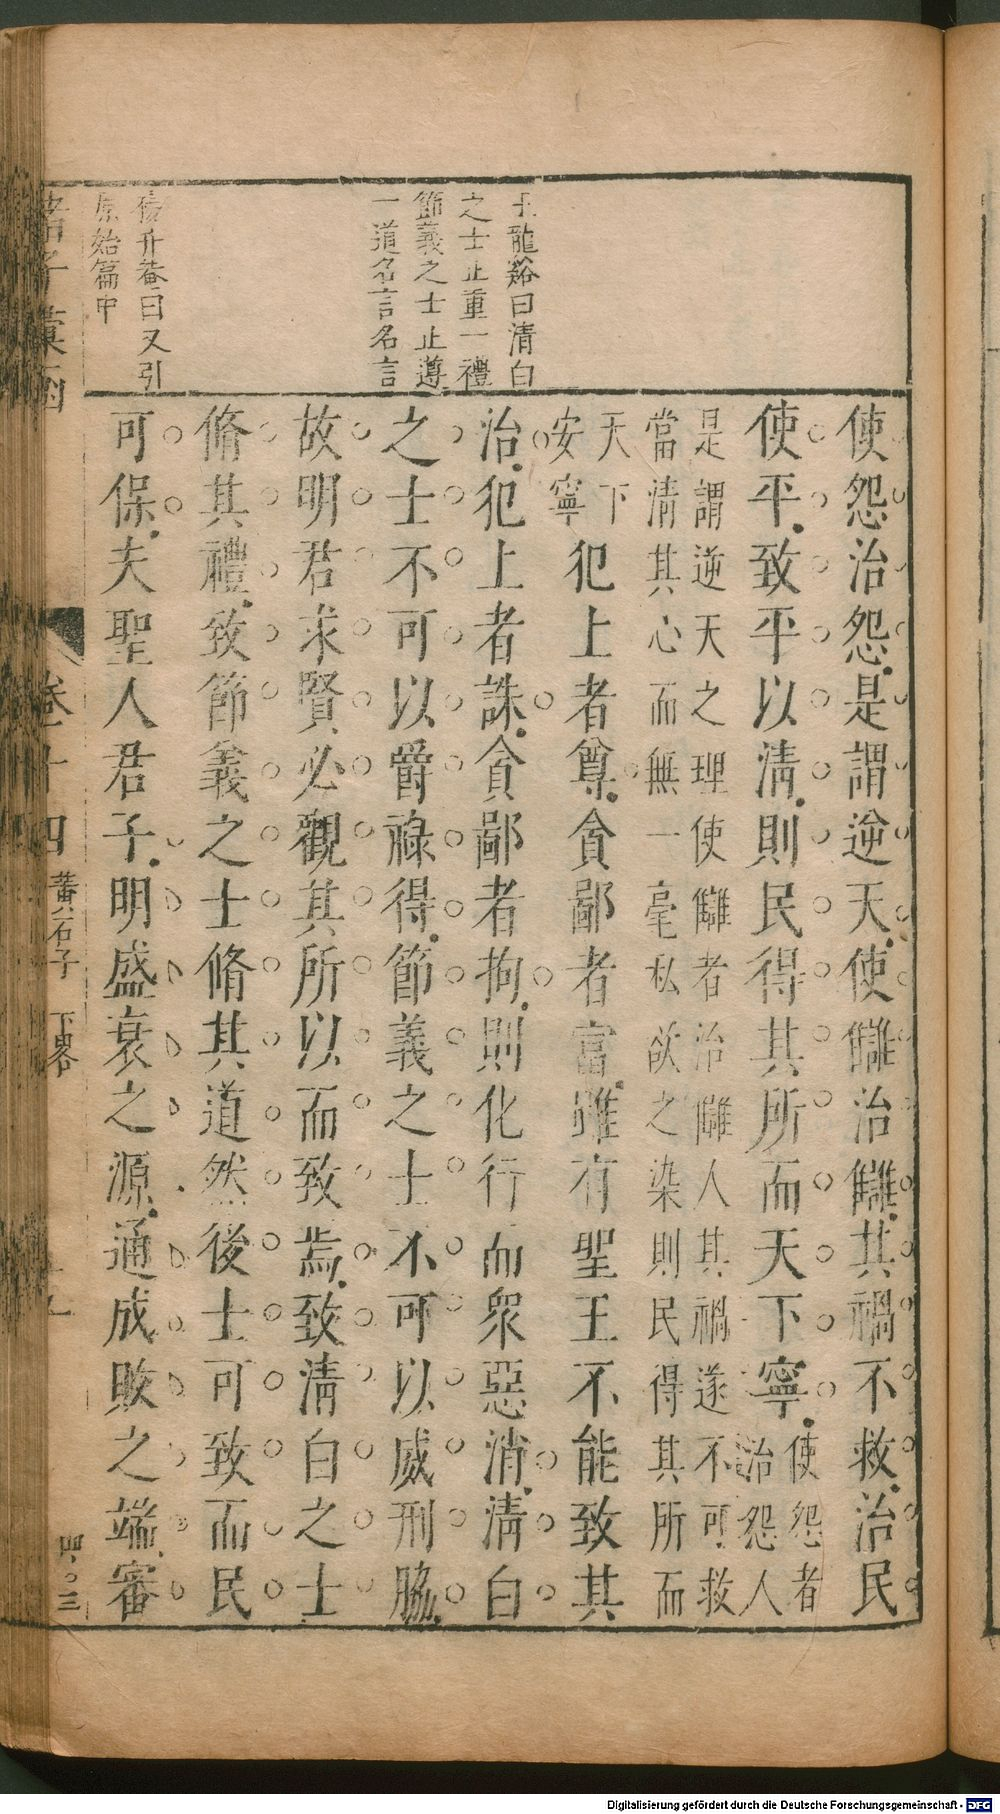 王龍谿曰清白
之士止重一禮
節義之士止遵
一道名言名言
楊升菴曰又引
原始篇中
使怨治怨是謂逆天使讎治讎其禍不救治民
使平致平以清則民得其所而天下寧使怨者治怨人
是謂逆天之理使讎者治讎人其禍遂不可救
當清其心而無一毫私欲之染則民得其所而
天下安寧犯上者尊貪鄙者富雖有聖王不能致其
治犯上者誅貪鄙者拘則化行而眾惡消清白
之士不可以爵祿得節義之士不可以威刑脇
故明君求賢必觀其所以而致焉致清白之士
脩其禮致節義之士脩其道然後士可致而民
可保夫聖人君子明盛衰之源通成敗之端審
諸子彙函 卷十四 黃石子 下畧
四〇三
Digitalisierung gefördert durch die Deutsche Forschungsgemeinschaft - DFG